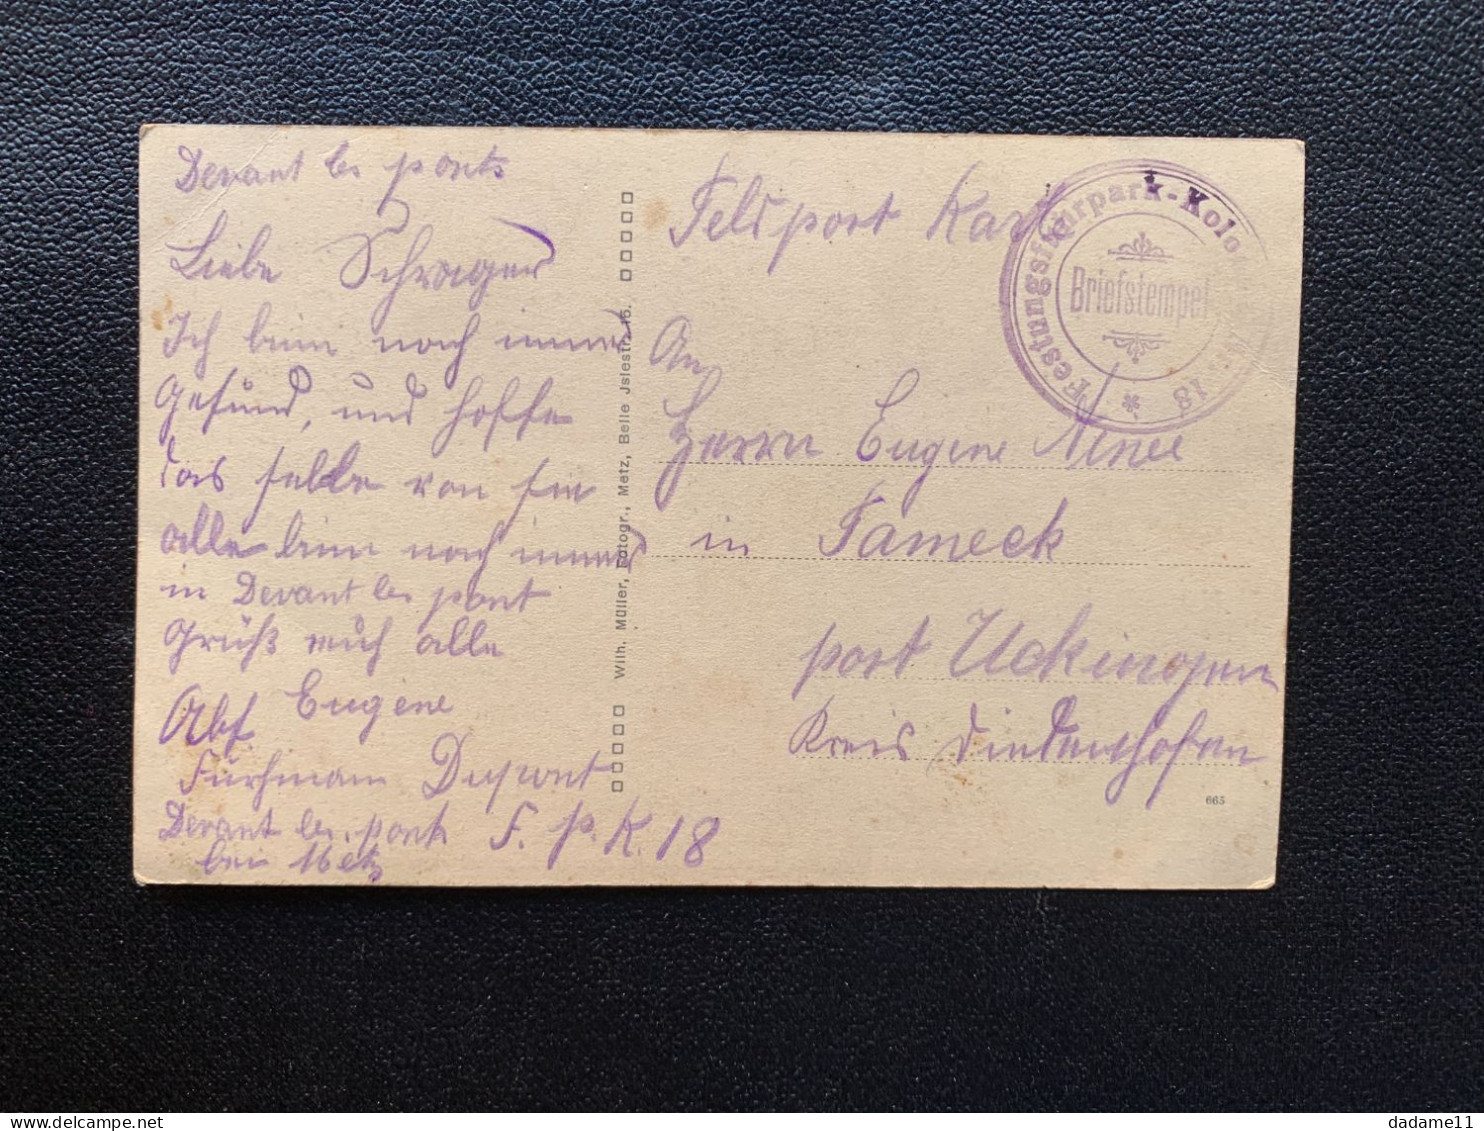 Devant les ponts
Liebe Schwager
Ich binn noch immer
Gesund, und hoffe
das selbe von sie
alle binn noch immer
in Devant les pont
Grüß euch alle
Eugène
Abs
Fuhrmann Dupont
Devant les ponts F. P. K. 18
bei Metz
Wilh. Müller, Fotogr., Metz, Belle Jslestr. 15.
Feldsport Kart
Festungsfuhrpark-Kolo 18
Briefstempel
An
Herrn Eugène
in Fameck
post Uckingen
Kreis Diedenhofen
665
delcampe.net
dadame11